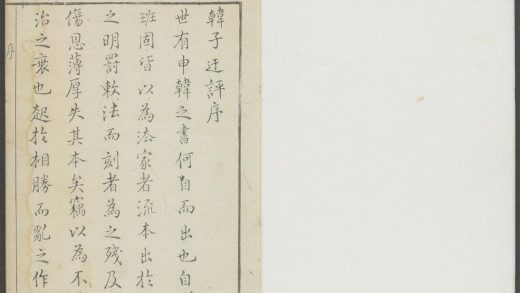 韓子迂評序
世有申韓之書何自而出也自
班固皆以為法家者流本出於
之明罰敕法而刻者為之殘及
傷恩薄厚失其本矣竊以為不
治之衰也起於相勝而亂之作
序